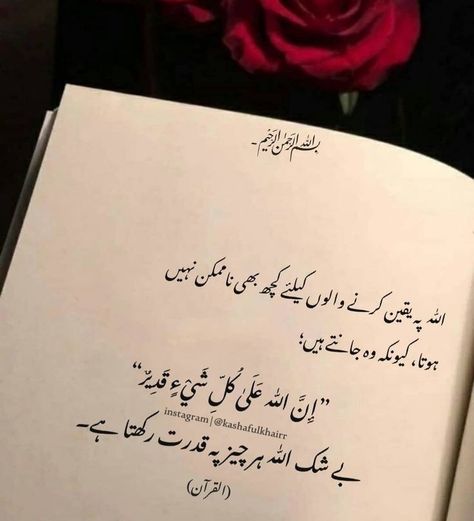 بسم اللہ الرحمٰن الرحیم -
اللہ پہ یقین کرنے والوں کیلئے کچھ بھی ناممکن نہیں
ہوتا، کیونکہ وہ جانتے ہیں؛
”إِنَّ اللہ عَلَىٰ كُلِّ شَيْءٍ قَدِيرٌ“
instagram|@kashafulkhairr
بے شک اللہ ہر چیز پہ قدرت رکھتا ہے۔
(القرآن)